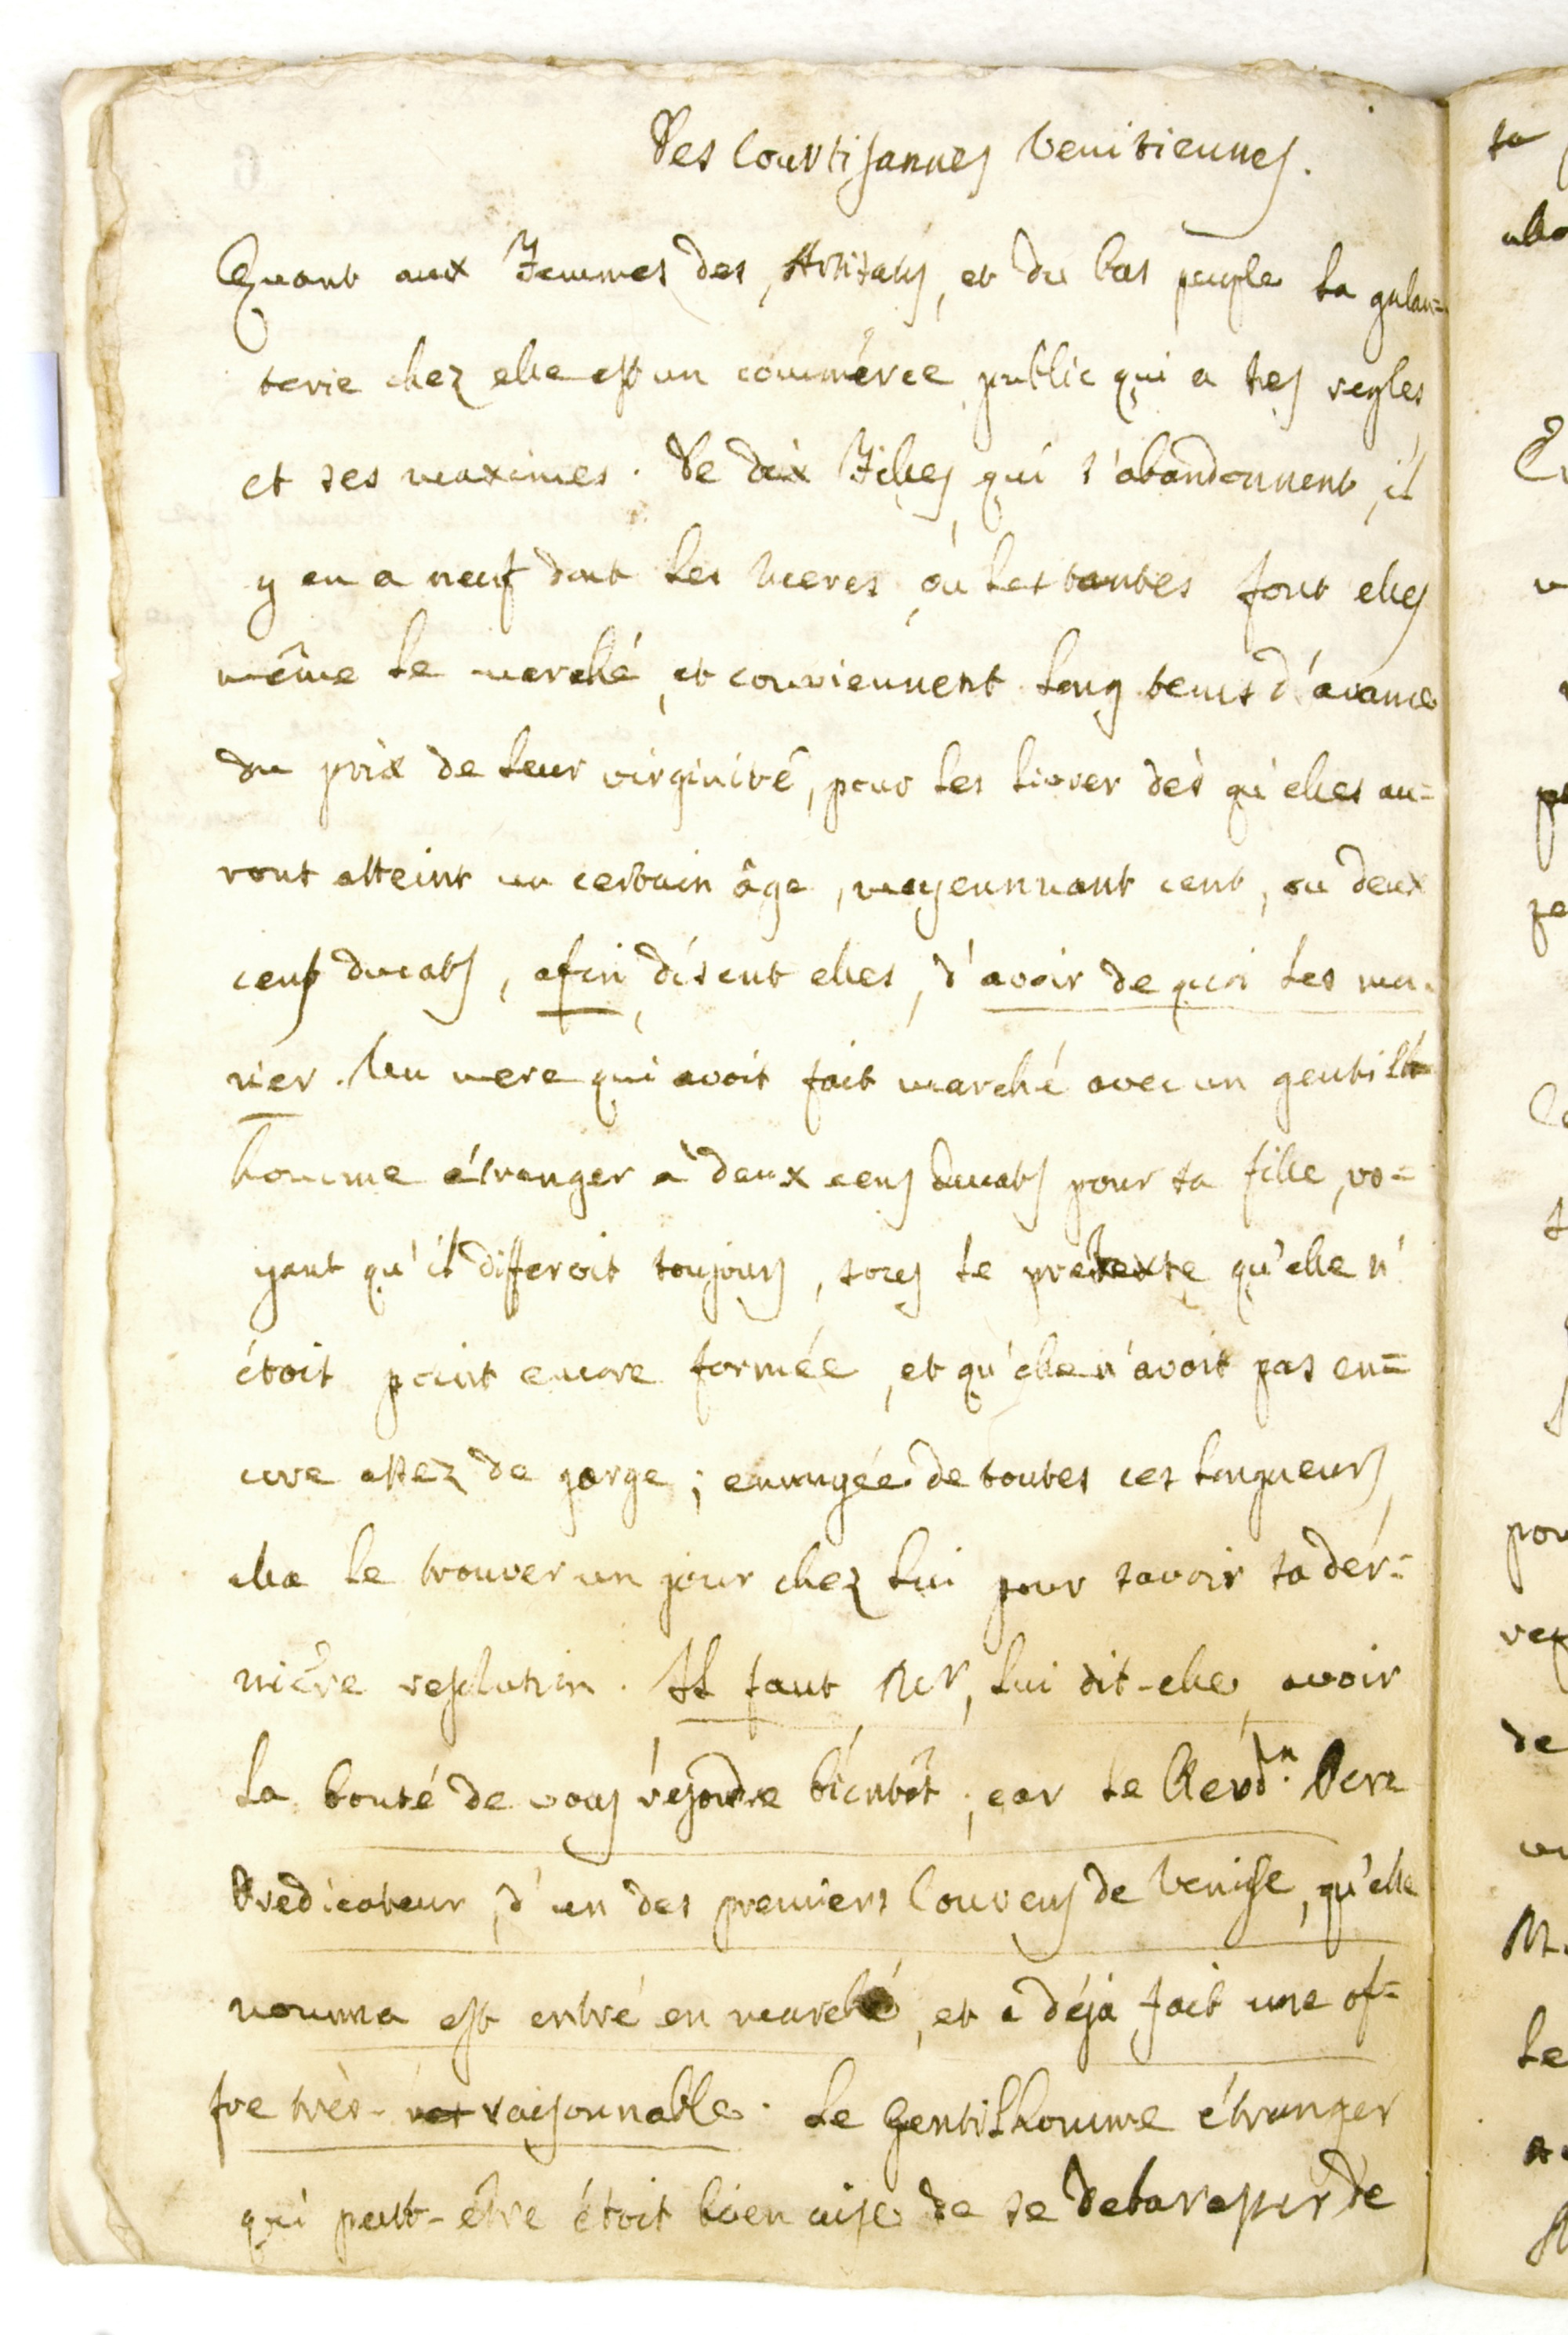 Des Courtisannes Venitiennes.
Quant aux Femmes des Artisans, et du bas peuple la galan=
terie chez elle est un commerce public qui a ses regles
et ses maximes. De dix Filles qui s'abandonnent, il
y en a neuf dont les meres ou les tantes font elles
même le marché, et conviennent long tems d'avance
du prix de leur virginité, pour les livrer dès qu'elles au=
ront atteint un certain âge, moyennnant cent, ou deux
cens ducats, afin disent elles, d'avoir de quoi les ma=
rier. Une mere qui avoit fait marché avec un gentil
homme étranger à deux cens ducats pour sa fille, vo=
yant qu'il differoit toujours, sous le pretexte qu'elle n'
étoit point encore formée, et qu'elle n'avoit pas en=
core assez de gorge; ennuyée de toutes ces longueurs,
alla le trouver un jour chez lui pour savoir sa der=
nière resolution. Il faut, Mr, lui dit-elle, avoir
la bonté de vous résoudre bientôt; car le Révd. Pere
Predicateur, d'un des premiers Couvens de Venise, qu'elle
nomma est entré en marché, et a déjà fait une of=
fre très- raisonnable. Le Gentilhomme étranger
qui peut-etre étoit bien aise de se debarasser de
sa
alla
pou
de
le